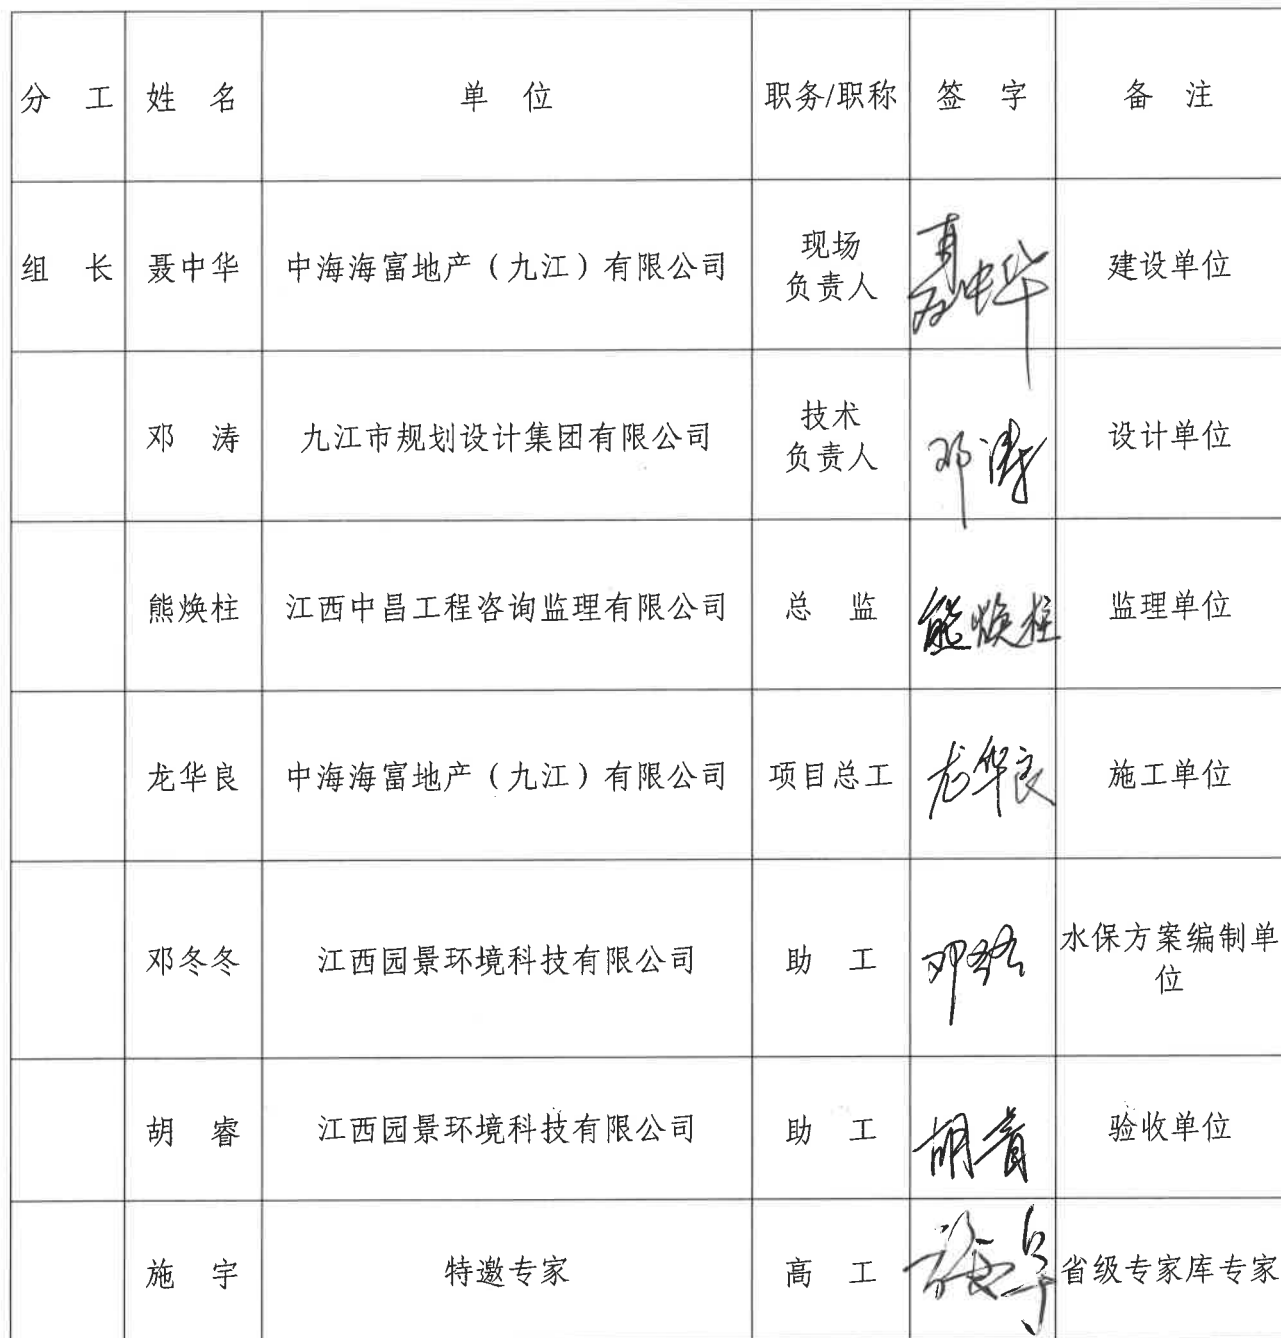 分 工 姓 名 单 位 职务/职称 签 字 备 注
组 长 聂中华 中海海富地产（九江）有限公司 现场
负责人 聂中华 建设单位
邓 涛 九江市规划设计集团有限公司 技术
负责人 邓涛 设计单位
熊焕柱 江西中昌工程咨询监理有限公司 总 监 熊焕柱 监理单位
龙华良 中海海富地产（九江）有限公司 项目总工 龙华良 施工单位
邓冬冬 江西园景环境科技有限公司 助 工 邓冬冬 水保方案编制单
位
胡 睿 江西园景环境科技有限公司 助 工 胡睿 验收单位
施 宇 特邀专家 高 工 施宇 省级专家库专家